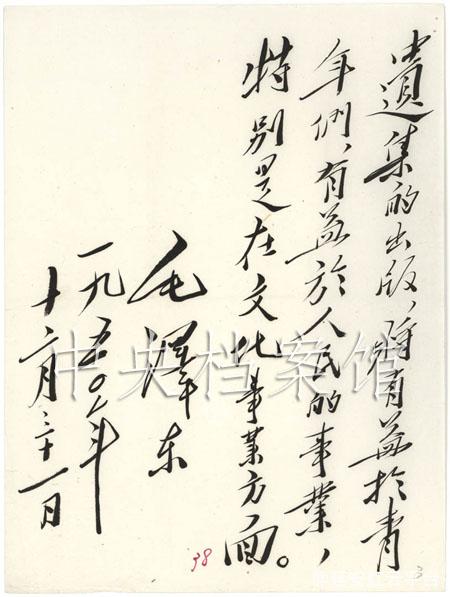 遺集的出版，將有益於青
年們，有益於人民的事業，
特別是在文化事業方面。
毛澤东
一九五〇年
十二月三十一日
中央档案馆
38
3